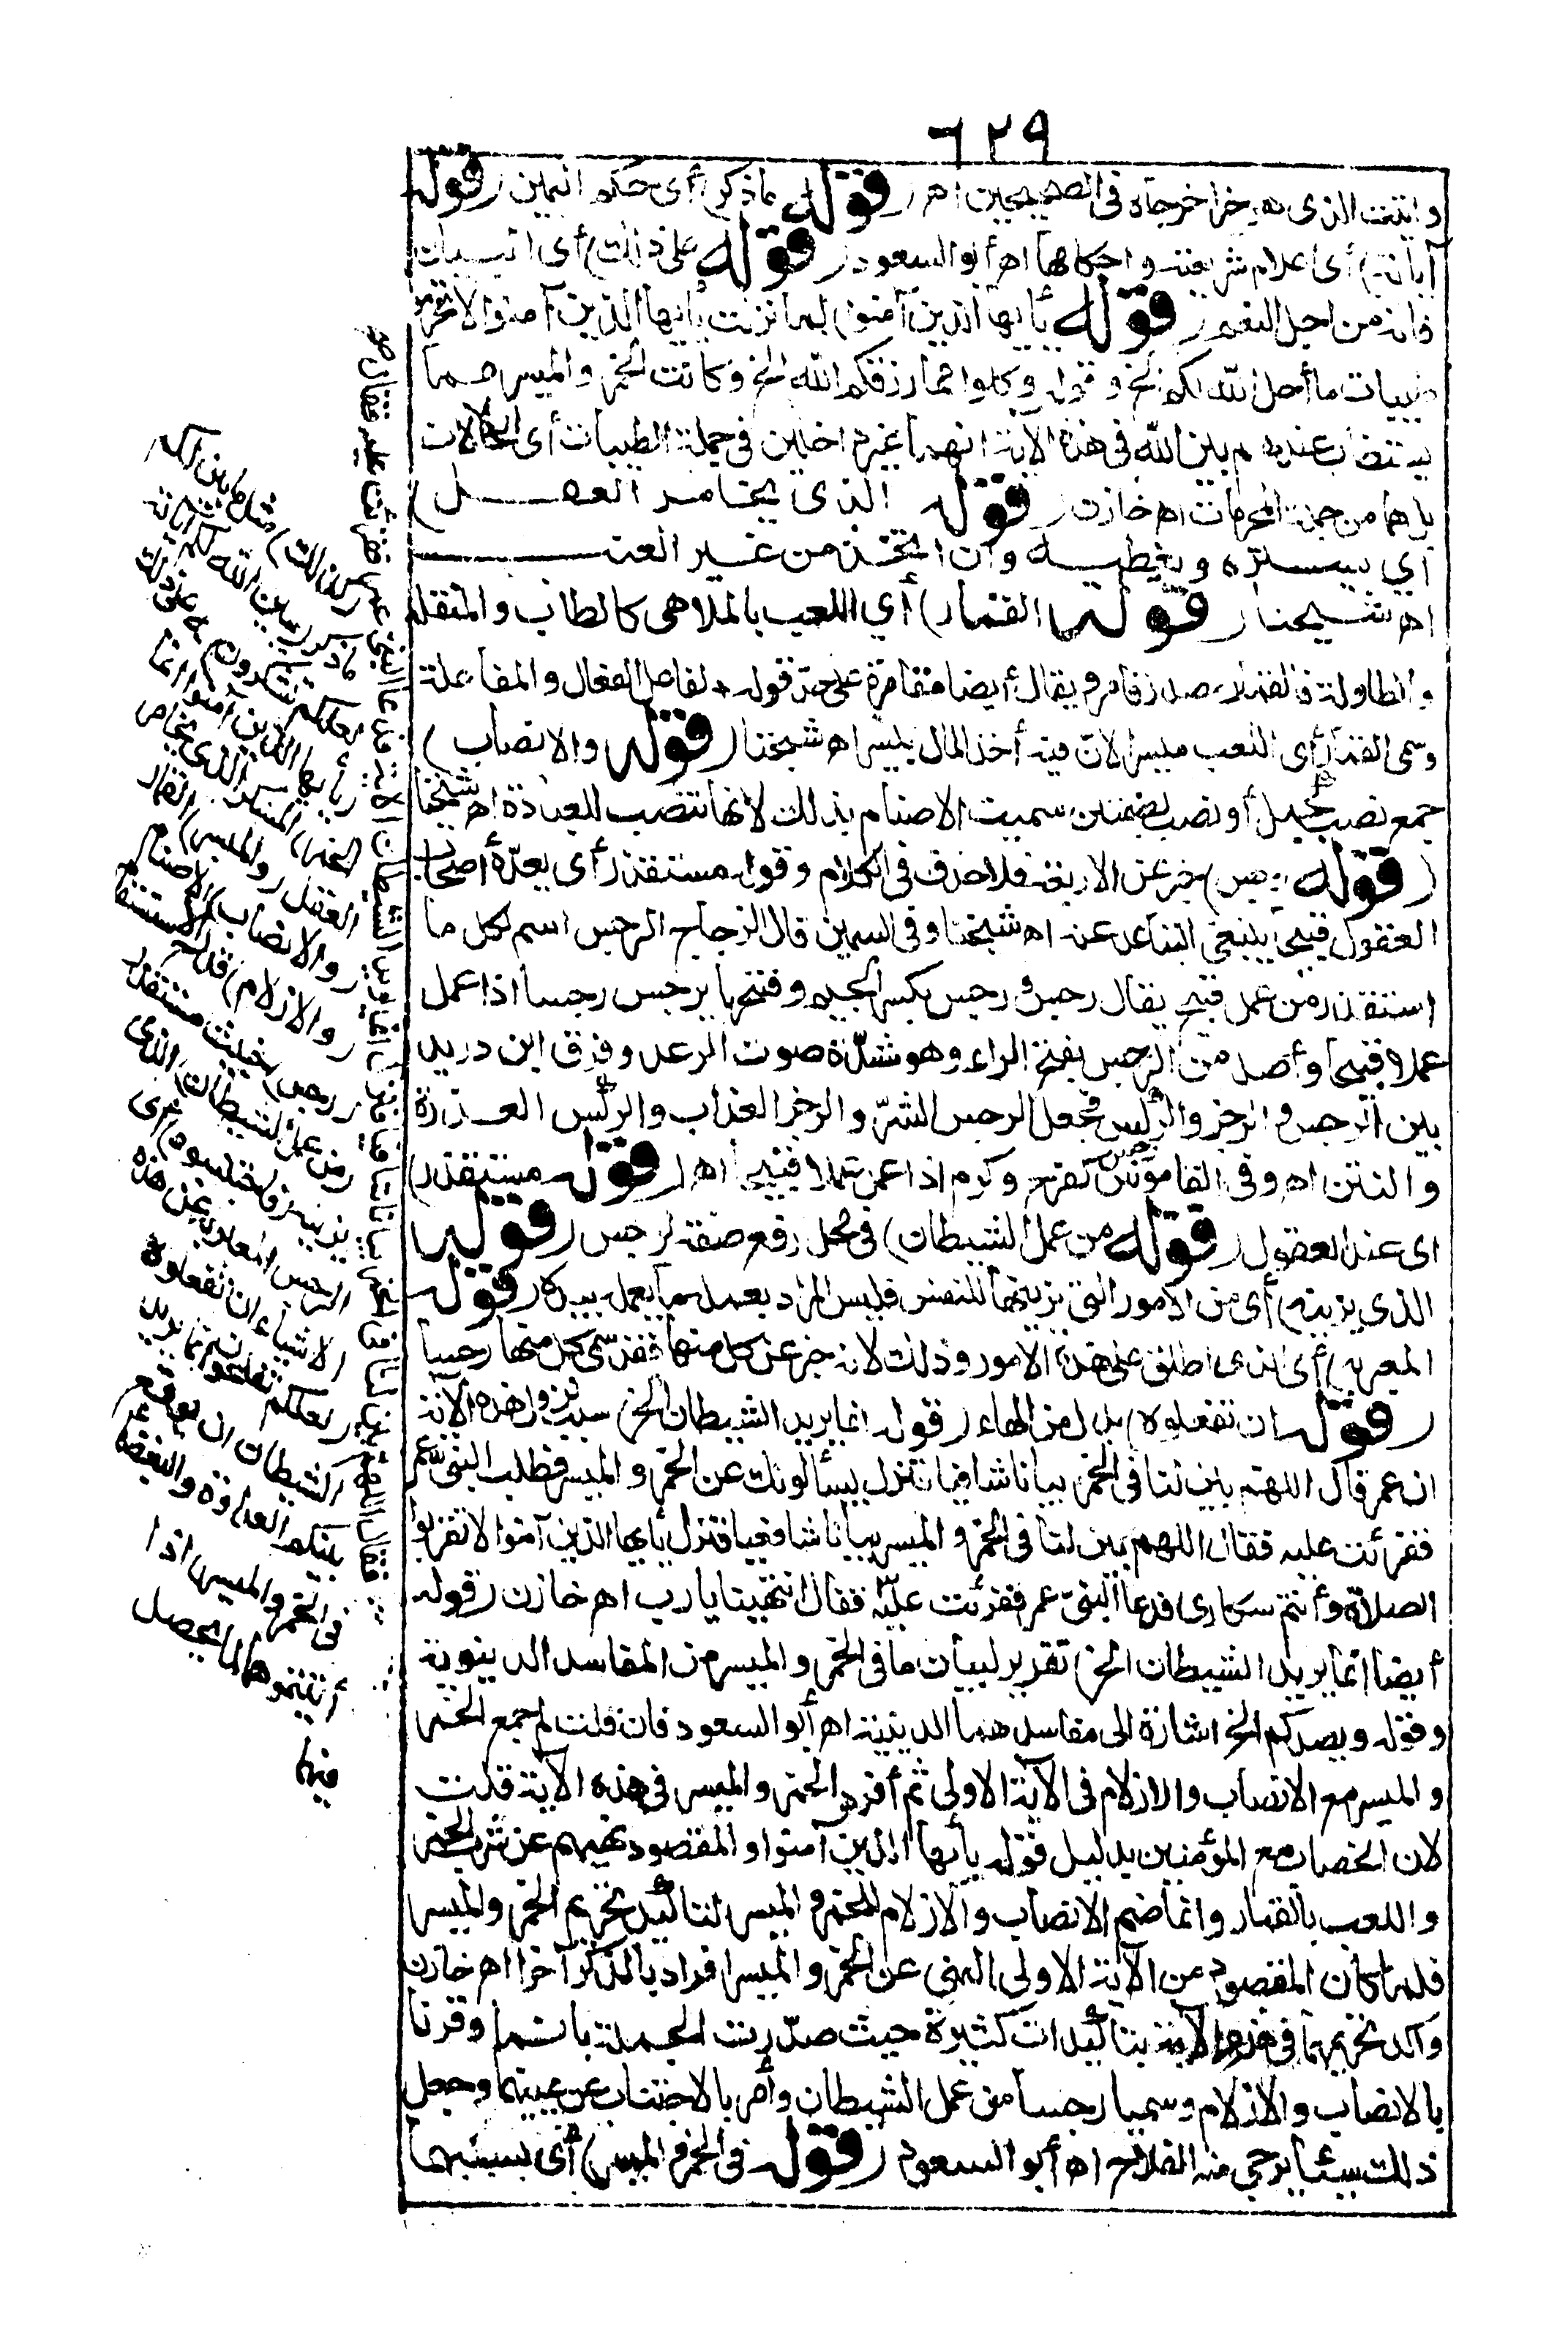 ٦٢٩
وائتت الذى هو خيرا خرجاه فى الصحيحين اه (قوله ماذكر) أى حكم اليمين (قوله
آياته) أى اعلام شريعته واحكامها اه أبو السعود (قوله على ذلك) أى التبيان
فانه من اجل النعم (قوله يأيها الذين آمنوا) لما نزلت يأيها الذين آمنوا لا تحرموا
طيبات ما أحل الله لكم الخ وقوله وكلوا مما رزقكم الله الخ وكانت الخمر والميسر مما
يستطاب عندهم بين الله فى هذه الآية انهما غير داخلين فى جملة الطيبات أى الحلالات
بل هما من جملة المحرمات اه خازن (قوله الذى يخامر العقل)
أى يستره ويغطيه وان اتخذ من غير العنب
اه شيخنا (قوله القمار) أى اللعب بالملاهى كالطاب والمنقلة
والطاولة فالقمار مصدر قامر ويقال أيضا مقامرة على حد قوله * لفاعل الفعال والمفاعلة
وسمى القمار أى اللعب ميسرا لان فيه أخذ المال بيسر اه شيخنا (قوله والانصاب)
جمع نصب كجمل أو نصب بضمتين سميت الاصنام بذلك لانها تنصب للعبادة اه شيخنا
(قوله رجس) خبر عن الاربعة فلا حذف فى الكلام وقوله مستقذر أى يعده أصحاب
العقول قبيحا ينبغى التباعد عنه اه شيخنا وفى السمين قال الزجاج الرجس اسم لكل ما
استقذر من عمل قبيح يقال رجس ورجس بكسر الجيم وفتحها يرجس رجسا اذا عمل
عملا قبيحا وأصله من الرجس بفتح الراء وهو شدة صوت الرعد وفرق ابن دريد
بين الرجس والرجز والركس فجعل الرجس الشر والرجز العذاب والركس العذرة
والنتن اه وفى القاموس رجس كفرح وكرم اذا عمل عملا قبيحا اه (قوله مستقذر)
اى عند العقول (قوله من عمل الشيطان) فى محل رفع صفة لرجس (قوله
الذى يزينه) أى من الامور التى يزينها للنفس فليس المراد بعمله ما يعمل بيده (قوله
المعبر به) أى الذى اطلق على هذه الامور وذلك لانه خبر عن كل منها فقد سمى كل منها رجسا
(قوله ان تفعلوه) بدل من الهاء (قوله انما يريد الشيطان الخ) سبب نزول هذه الآية
ان عمر قال اللهم بين لنا فى الخمر بيانا شافيا فنزل يسألونك عن الخمر والميسر فطلب النبى عمر
فقرئت عليه فقال اللهم بين لنا فى الخمر والميسر بيانا شافيا فنزل يأيها الذين آمنوا لا تقربوا
الصلاة وأنتم سكارى فدعا النبى عمر فقرئت عليه فقال انتهينا يا رب اه خازن (قوله
أيضا انما يريد الشيطان الخ) تقرير لبيان ما فى الخمر والميسر من المفاسد الدينوية
وقوله ويصدكم الخ اشارة الى مفاسدهما الدينية اه أبو السعود فان قلت لم جمع الخمر
والميسر مع الانصاب والازلام فى الآية الاولى ثم أفرد الخمر والميسر فى هذه الآية قلت
لان الخصاب مع المؤمنين بدليل قوله يأيها الذين آمنوا والمقصود نهيهم عن شرب الخمر
واللعب بالقمار وانما ضم الانصاب والازلام للخمر والميسر لتأكيد تحريم الخمر والميسر
فلما كان المقصود من الآية الاولى النهى عن الخمر والميسر افردا بالذكر آخرا اه خازن
وأكد تحريمهما فى هذه الآية بتأكيدات كثيرة حيث صدرت الجملة بانما وقرنا
بالانصاب والازلام وسميا رجسا من عمل الشيطان وأمر بالاجتناب عن عينهما وجعل
ذلك سببا يرجى منه الفلاح اه أبو السعود (قوله فى الخمر والميسر) أى بسببهما
(كذلك) مثل ما بين لكم
ما ذكر (يبين الله لكم آياته
لعلكم تشكرون) ه على ذلك
(يأيها الذين آمنوا انما
الخمر) المسكر الذى يخامر
العقل (والميسر) القمار
(والانصاب) الاصنام
(والازلام) قداح الاستقسام
(رجس) خبيث مستقذر
(من عمل الشيطان) الذى
يزينه (فاجتنبوه) أى
الرجس المعبر به عن هذه
الاشياء ان تفعلوه
(لعلكم تفلحون انما يريد
الشيطان ان يوقع
بينكم العداوة والبغضاء
فى الخمر والميسر) اذا
أتيتموهما لما يحصل
فيهما